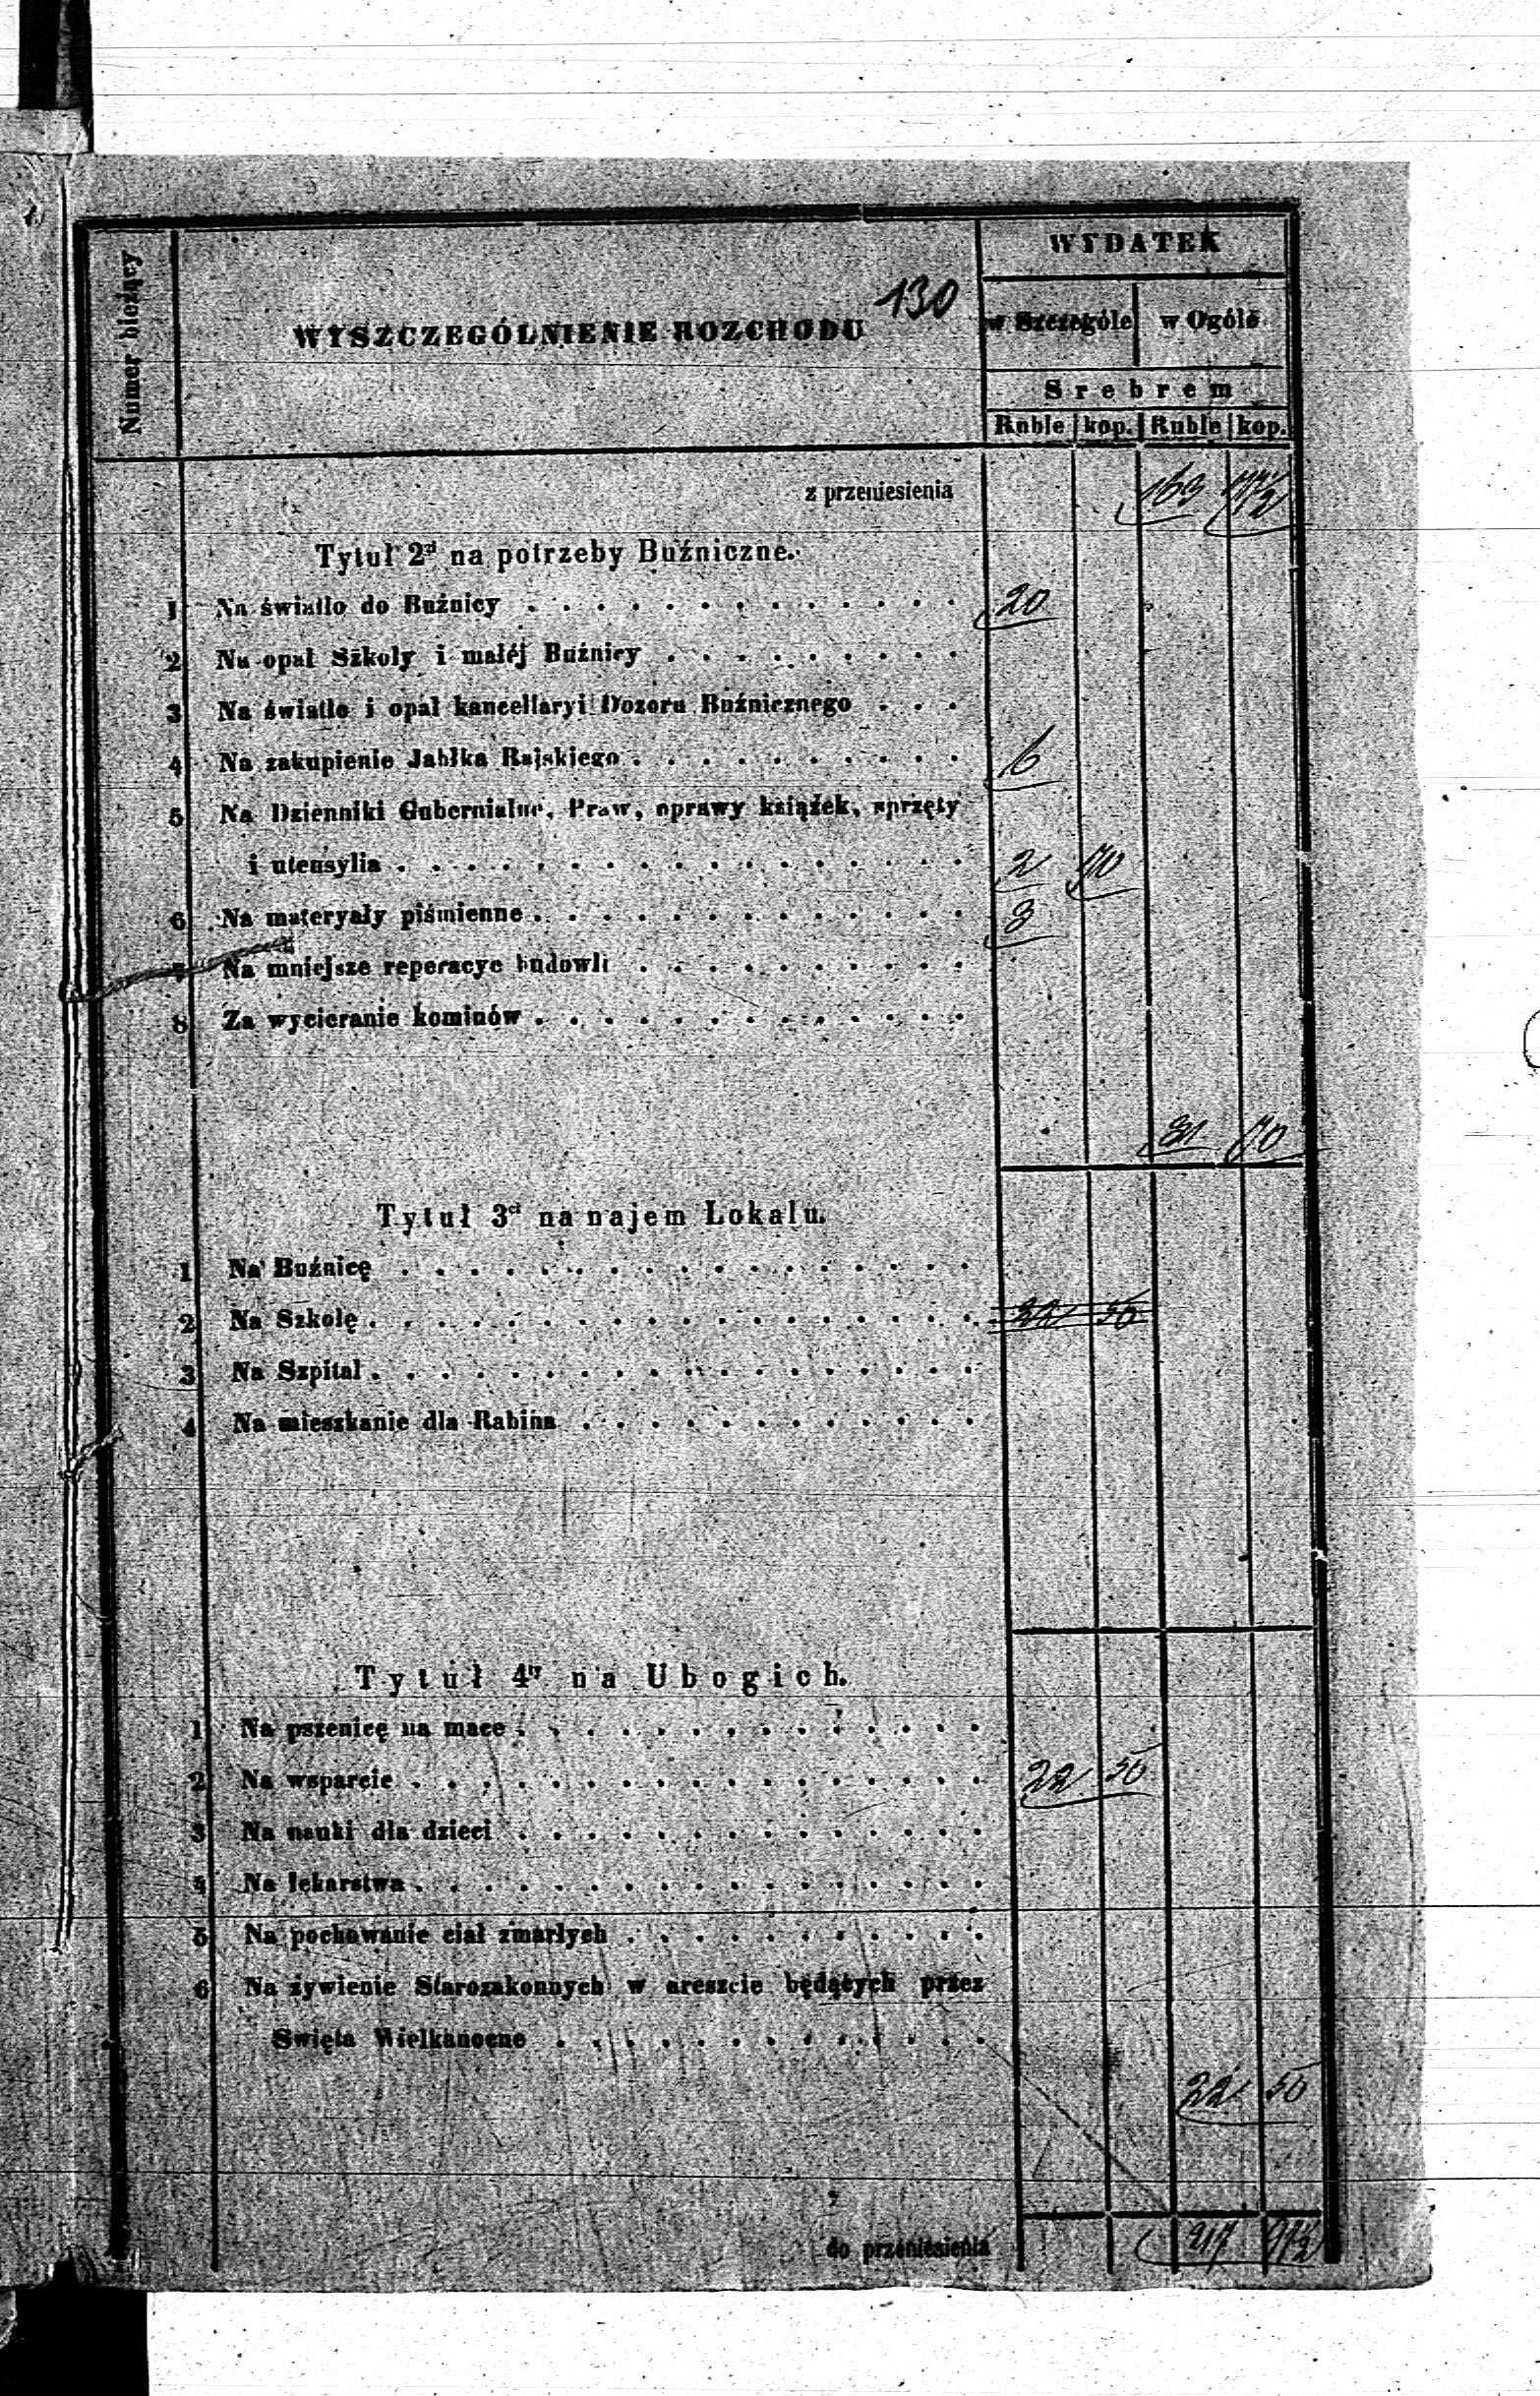 130
Numer bieżący
WYSZCZEGÓLNIENIE ROZCHODU
WYDATEK
w Szczególe w Ogóle
Srebrem
Ruble kop. Ruble kop.
z przeniesienia 163 77½
Tytuł 2gi na potrzeby Buźniczne.
1 Na światło do Buźnicy . . . . . . . . . . . . . 20
2 Na opał Szkoły i małéj Buźnicy . . . . . . . . .
3 Na światło i opał kancellaryi Dozoru Buźnicznego . . .
4 Na zakupienie Jabłka Rajskiego . . . . . . . . . . 6
5 Na Dzienniki Gubernialne, Praw, oprawy książek, sprzęty
i utensylia . . . . . . . . . . . . . . . . . 2 70
6 Na materyały piśmienne . . . . . . . . . . . . . 3
7 Na mniejsze reperacye budowli . . . . . . . . . .
8 Za wycieranie kominów . . . . . . . . . . . . .
31 70
Tytuł 3ci na najem Lokalu.
1 Na Buźnicę . . . . . . . . . . . . . . . . .
2 Na Szkołę . . . . . . . . . . . . . . . . . . 22 50
3 Na Szpital . . . . . . . . . . . . . . . . . .
4 Na mieszkanie dla Rabina . . . . . . . . . . . .
Tytuł 4ty na Ubogich.
1 Na pszenicę na mace . . . . . . . . . . . . . .
2 Na wsparcie . . . . . . . . . . . . . . . . . 22 50
3 Na nauki dla dzieci . . . . . . . . . . . . . .
4 Na lekarstwa . . . . . . . . . . . . . . . . .
5 Na pochowanie ciał zmarłych . . . . . . . . . . .
6 Na żywienie Starozakonnych w areszcie będących przez
Święta Wielkanocne . . . . . . . . . . . . .
22 50
do przeniesienia 217 97½